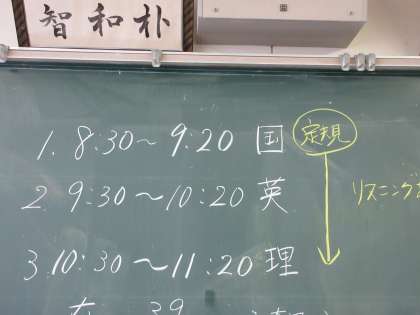 智和朴
1. 8:30〜9:20 国 定規
2. 9:30〜10:20 英 リスニング
3. 10:30〜11:20 理